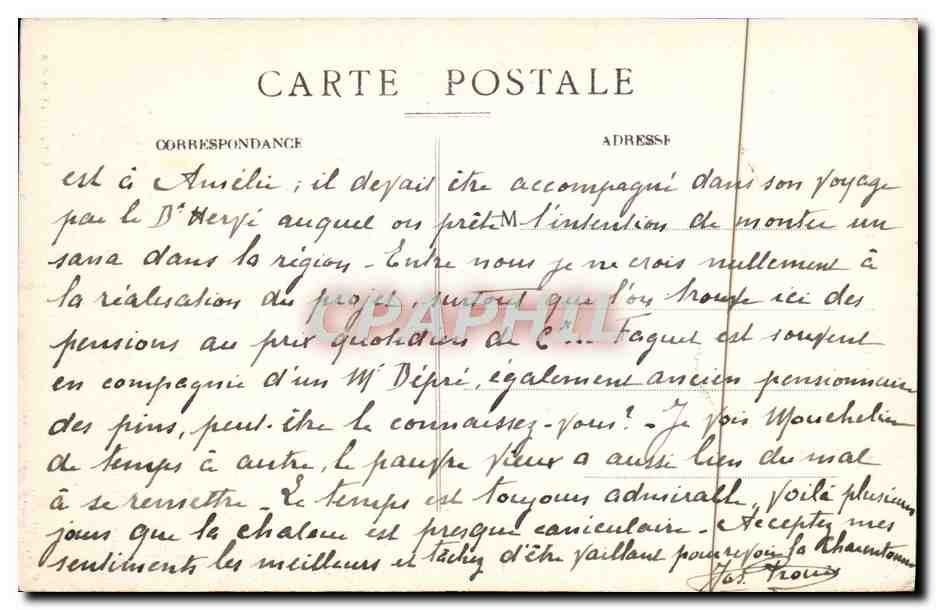 CARTE POSTALE
CORRESPONDANCE
ADRESSE
est à Amélie ; il devait être accompagné dans son voyage
par le Dr Hervé auquel on prête M l'intention de monter un
sana dans la région - Entre nous je ne crois nullement à
la réalisation du projet, surtout que l'on trouve ici des
pensions au prix quotidien de ... Faguet est souvent
en compagnie d'un Mr Dépré, également ancien pensionnaire
des pins, peut-être le connaissez-vous ? - Je vois
de temps à autre, le pauvre vieux a aussi bien du mal
à se remettre - Le temps est toujours admirable, voilà plusieurs
jours que la chaleur est presque caniculaire - Acceptez mes
sentiments les meilleurs et tâchez d'être vaillant pour revoir la
CPAPHIL